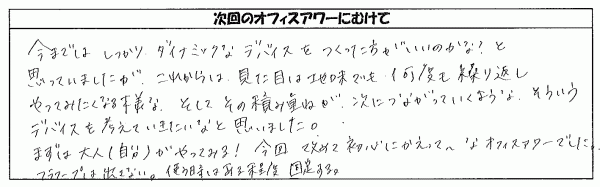 次回のオフィスアワーにむけて
今までは しっかり、ダイナミックな デバイスを つくった方がいいのかな？と
思っていましたが、これからは、見た目は地味でも、何度も繰り返し
やってみたくなる様な、そして その積み重ねが、次につながっていくような、そういう
デバイスを考えていきたいなと思いました。
まずは大人（自分）がやってみる！ 今回 改めて初心にかえって〜なオフィスアワーでした。
は出さない。使う時はある程度 固定する。